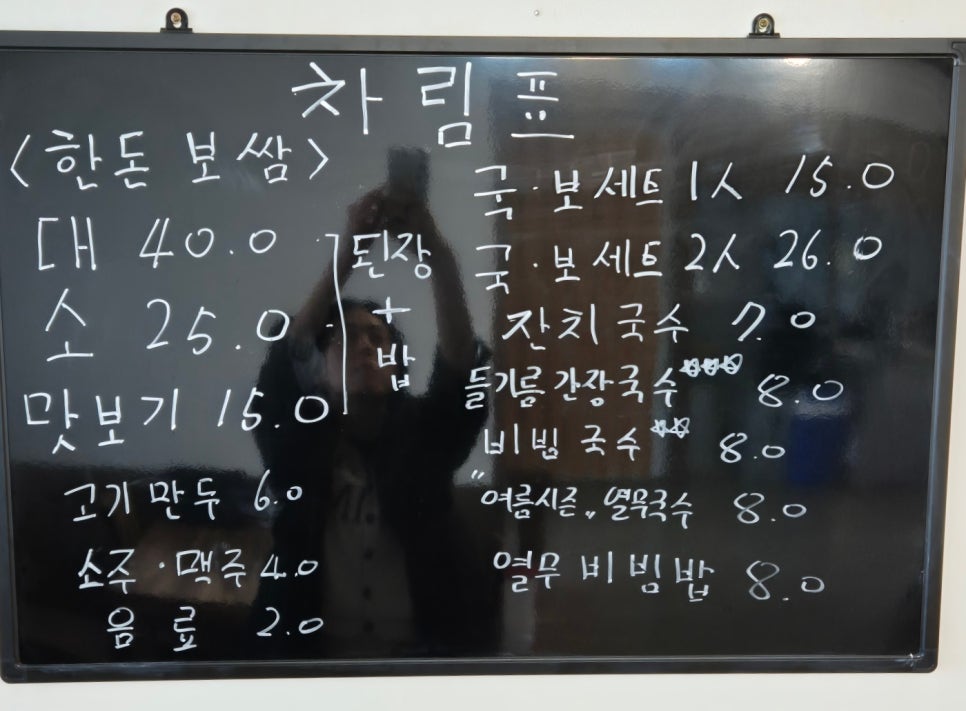 차림표
<한돈 보쌈>
대 40.0
소 25.0
맛보기 15.0
된장
+
밥
고기만두 6.0
소주·맥주 4.0
음료 2.0
국·보세트 1人 15.0
국·보세트 2人 26.0
잔치국수 7.0
들기름간장국수☆☆☆ 8.0
비빔국수☆☆ 8.0
"여름시즌" 열무국수 8.0
열무비빔밥 8.0